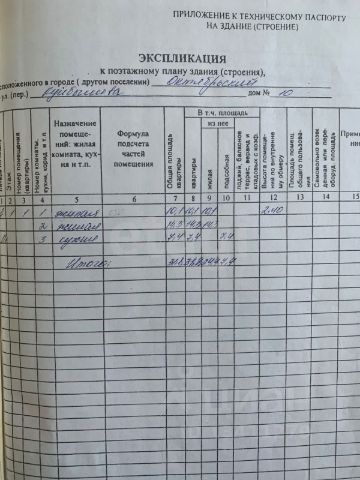 ПРИЛОЖЕНИЕ К ТЕХНИЧЕСКОМУ ПАСПОРТУ
НА ЗДАНИЕ (СТРОЕНИЕ)
ЭКСПЛИКАЦИЯ
к поэтажному плану здания (строения),
сположенного в городе ( другом поселении) Октябрьский
ул. (пер.) Куйбышева дом № 10
Этаж
Номер помещения (квартиры)
Номер комнаты, кухни, корид. и т.п.
Назначение помещений: жилая комната, кухня и т.п.
Формула подсчета частей помещения
Общая площадь квартиры
В т.ч. площадь
из нее
квартиры
жилая
подсобная
лоджий, балконов террас, веранд и кладовых с коэф.
Высота помещений по внутреннему обмеру
Площадь помещ. общего пользования
Приме
1 2 3 4 5 6 7 8 9 10 11 12 13 14 15
1 1 жилая 10,1 10,1 10,1 2.40
2 жилая 14,3
3 кухня 7,4 7,4 7,4
Итого: 7,4